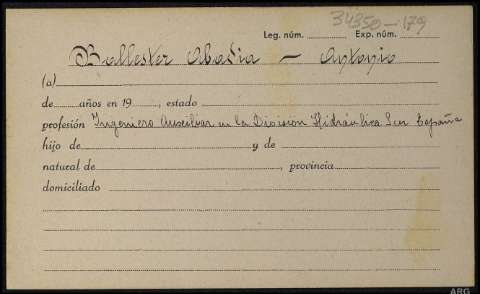 34350-179
Leg. núm. Exp. núm.
Ballester Abadia — Antonio
(a)
de años en 19 , estado
profesión Ingeniero Auxiliar en la División Hidráulica Sur España
hijo de y de
natural de , provincia
domiciliado
ARG